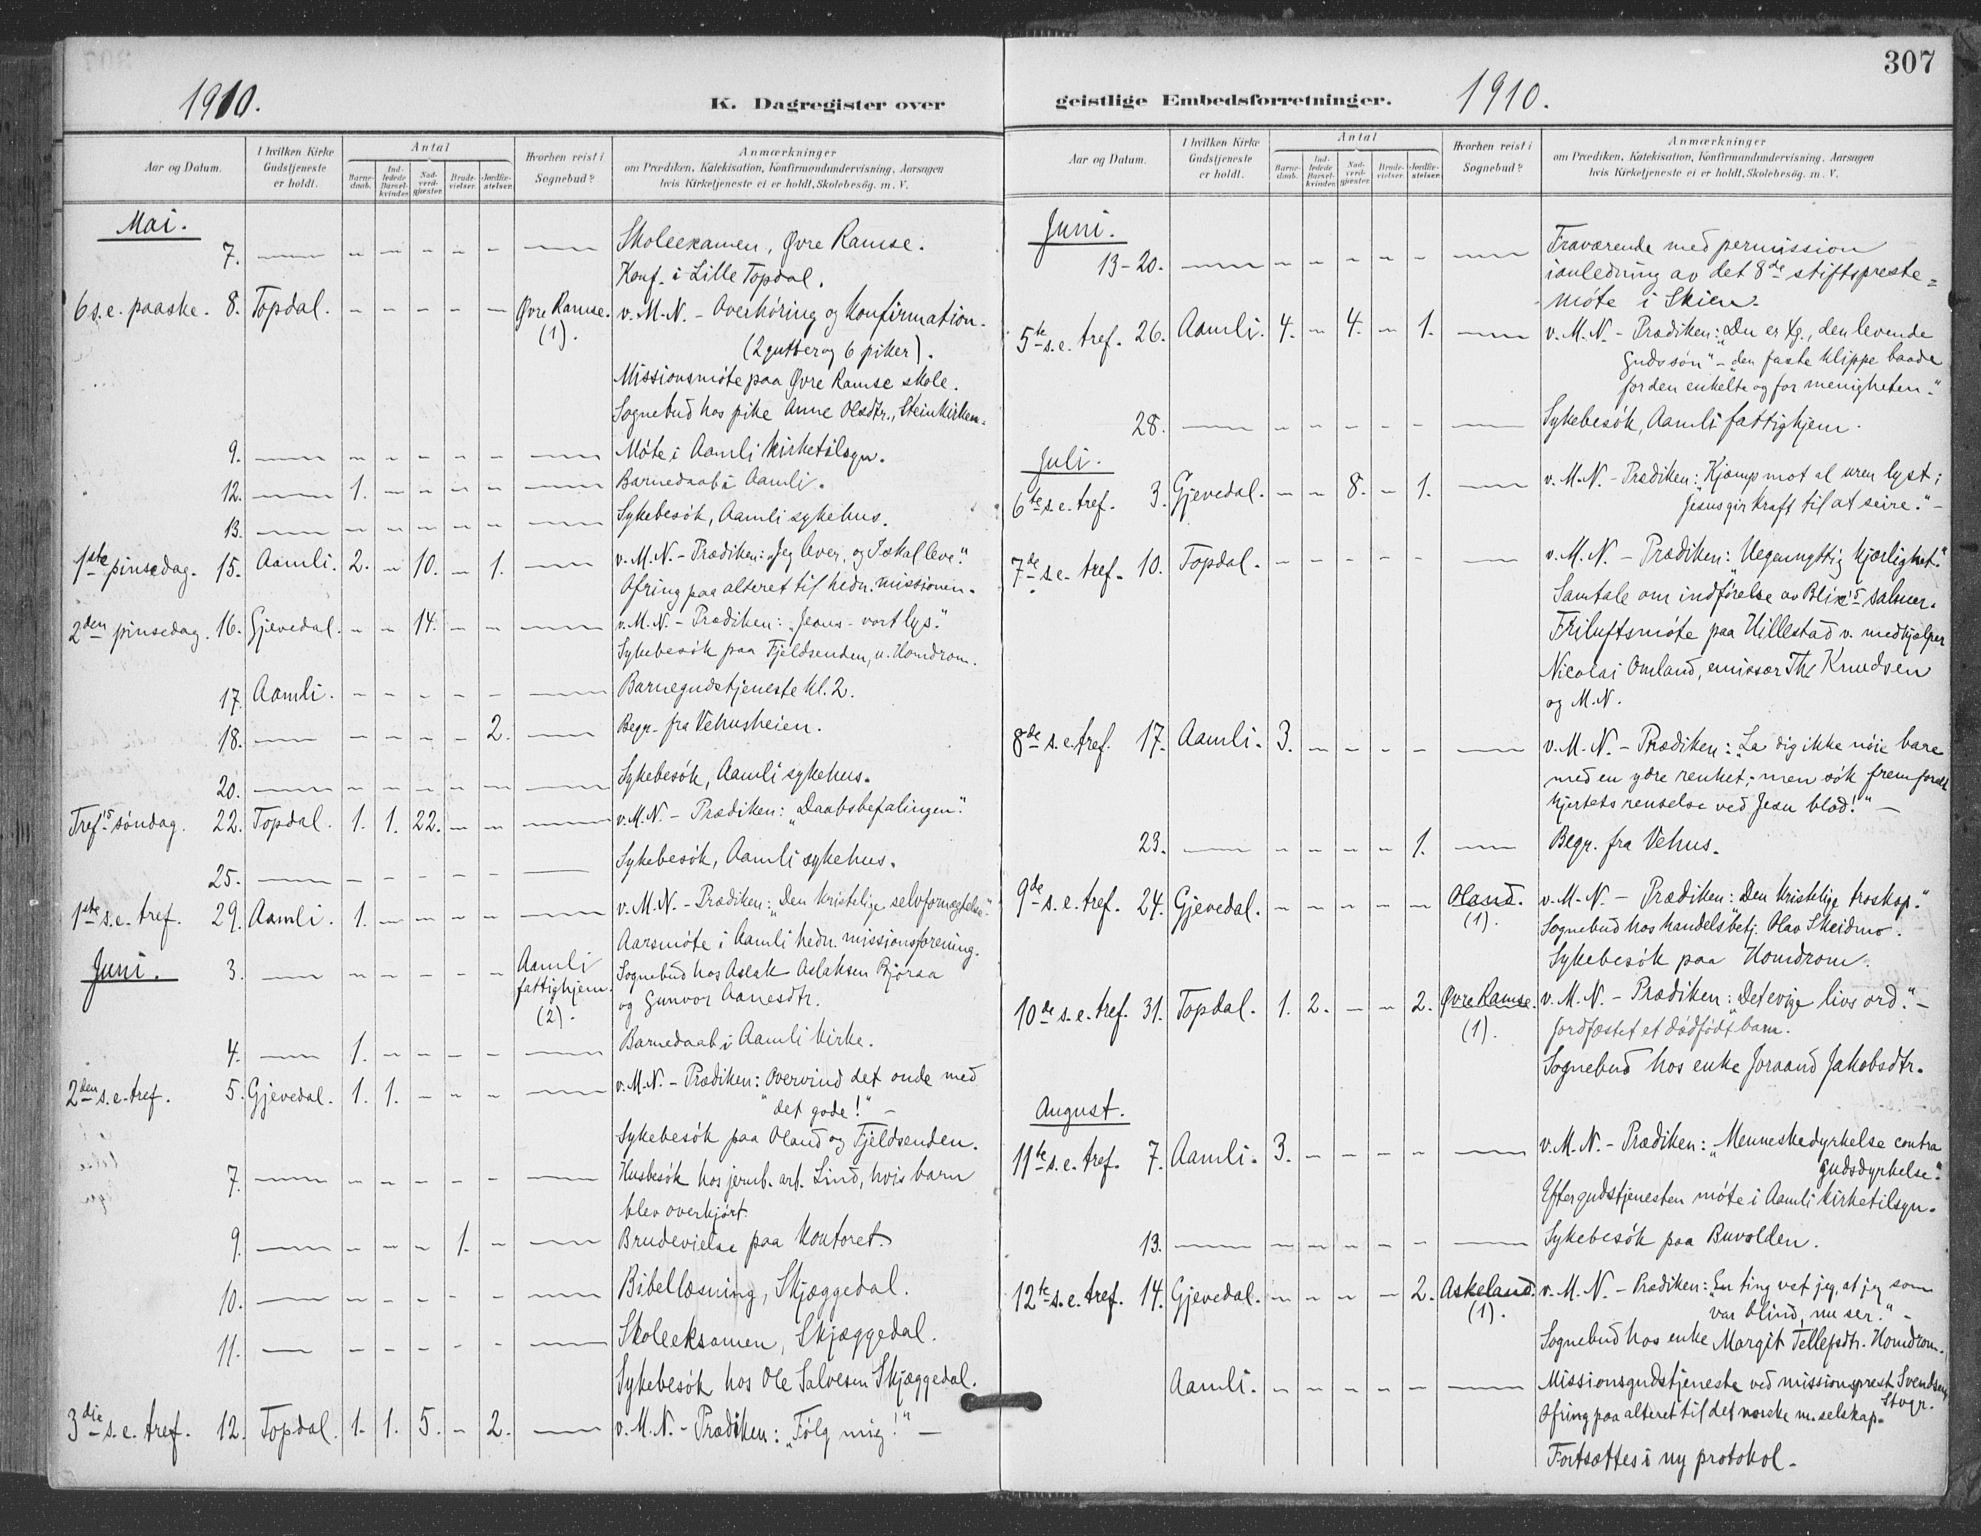 1910.
K. Dagregister over
Aar og Datum.
I hvilken Kirke Gudstjeneste er holdt.
Antal
Barnedaab.
Indledede Barselkvinder.
Nadverdgjester.
Brudevielser.
Jordfæstelser.
Hvorhen reist i Sognebud?
Anmærkninger
om Prædiken, Katekisation, Konfirmandundervisning, Aarsagen
hvis Kirketjeneste ei er holdt, Skolebesøg. m. V.
Mai.
7. — – – – – – — Skoleexamen, Øvre Ramse.
Konf. i Lille Topdal.
6 s. e. paaske. 8. Topdal. – – – – – Øvre Ramse. v. M. N. – Overhøring og konfirmation.
(1). (2 gutter og 6 piker).
Missionsmøte paa Øvre Ramse skole.
Sognebud hos pike Anne Olsdtr., Steinkirken.
9. — – – – – – — Møte i Aamli kirketilsyn.
12. — 1. – – – – — Barnedaab i Aamli.
13. — – – – – – — Sykebesøk, Aamli sykehus.
1ste pinsedag. 15. Aamli. 2. – 10. – 1. — v. M. N. – Prædiken: „Jeg lever, og I skal leve“.
Ofring paa alteret til hedn. missionen.
2den pinsedag. 16. Gjevedal. – – 14. – – — v. M. N. – Prædiken: „Jesus – vort lys“.
Sykebesøk paa Fjeldsenden, u. Homdrom.
17. Aamli. – – – – – — Barnegudstjeneste kl. 2.
18. — – – – – 2. — Begr. fra Vehusheien.
20. — – – – – – — Sykebesøk, Aamli sykehus.
Tref.s søndag. 22. Topdal. 1. 1. 22. – – — v. M. N. – Prædiken: „Daabsbefalingen“.
25. — – – – – – — Sykebesøk, Aamli sykehus.
1ste s. e. tref. 29. Aamli. 1. – – – – — v. M. N. – Prædiken: „Den kristelige selvfornegtelse“
Aarsmøte i Aamli hedn. missionsforening.
Juni. 3. — – – – – – Aamli Sognebud hos Aslak Aslaksen Bjoraa
fattighjem. og Gunvor Aanesdtr.
(2).
4. — 1. – – – – — Barnedaab i Aamli kirke.
2den s. e. tref. 5. Gjevedal. 1. 1. – – – — v. M. N. – Prædiken: Overvind det onde med
„det gode!“ –
Sykebesøk paa Oland og Fjeldsenden.
7. — – – – – – — Husbesøk hos jernb. arb. Lind, hvis barn
blev overkjørt.
9. — – – – 1. – — Brudevielse paa kontoret.
10. — – – – – – — Bibellæsning, Skjæggedal.
11. — – – – – – — Skoleeksamen, Skjæggedal.
Sykebesøk hos Ole Salvesen Skjæggedal.
3die s. e. tref. 12. Topdal. 1. 1. 5. – 2. — v. M. N. – Prædiken: „Følg mig!“ –
307
geistlige Embedsforretninger. 1910.
Aar og Datum.
I hvilken Kirke Gudstjeneste er holdt.
Antal
Barnedaab.
Indledede Barselkvinder.
Nadverdgjester.
Brudevielser.
Jordfæstelser.
Hvorhen reist i Sognebud?
Anmærkninger
om Prædiken, Katekisation, Konfirmandundervisning, Aarsagen
hvis Kirketjeneste ei er holdt, Skolebesøg. m. V.
Juni.
13–20. — – – – – – — Fraværende med permission
ianledning av det 8de stiftspreste=
møte i Skien.
5te s. e. tref. 26. Aamli. 4. – 4. – 1. — v. M. N. – Prædiken: „Du er Kr., den levende
Guds søn“ – „den faste klippe baade
for den enkelte og for menigheten.“
28. — – – – – – — Sykebesøk, Aamli fattighjem.
Juli.
6te s. e. tref. 3. Gjevedal. – – 8. – 1. — v. M. N. – Prædiken: Kjæmp mot al uren lyst;
„Jesus gir kraft til at seire.“ –
7de s. e. tref. 10. Topdal. – – – – – — v. M. N. – Prædiken: „Uegennyttig kjærlighet“.
Samtale om indførelse av Blix's salmer.
Friluftsmøte paa Hillestad v. medhjælper
Nicolai Omland, emissær Th. Knudsen
og M. N.
8de s. e. tref. 17. Aamli. 3. – – – – — v. M. N. – Prædiken: „La dig ikke nøie bare
med en ydre renhet, men søk fremforalt
hjertets renselse ved Jesu blod!“ –
23. — – – – – 1. — Begr. fra Vehus.
9de s. e. tref. 24. Gjevedal. – – – – – Oland. v. M. N. – Prædiken: „Den kristelige troskap“.
(1). Sognebud hos handelsbetj. Olav Skeidmo.
Sykebesøk paa Homdrom.
10de s. e. tref. 31. Topdal. 1. 2. – – 2. Øvre Ramse. v. M. N. – Prædiken: „Det evige livs ord.“ –
(1). Jordfæstet et dødfødt barn.
Sognebud hos enke Joraand Jakobsdtr.
August.
11te s. e. tref. 7. Aamli. 3. – – – – — v. M. N. – Prædiken: „Menneskedyrkelse contra
gudsdyrkelse“.
Efter gudstjenesten møte i Aamli kirketilsyn.
13. — – – – – – — Sykebesøk paa Buvolden.
12te s. e. tref. 14. Gjevedal. – – – – 2. Askeland. v. M. N. – Prædiken: „En ting vet jeg, at jeg som
(1). var blind, nu ser.“ –
Sognebud hos enke Margit Tellefsdtr. Homdrom.
Aamli. – – – – – — Missionsgudstjeneste ved missionsprest Svendsen,
Stvgr.
Ofring paa alteret til det norske m.selskap.
Fortsættes i ny protokol.